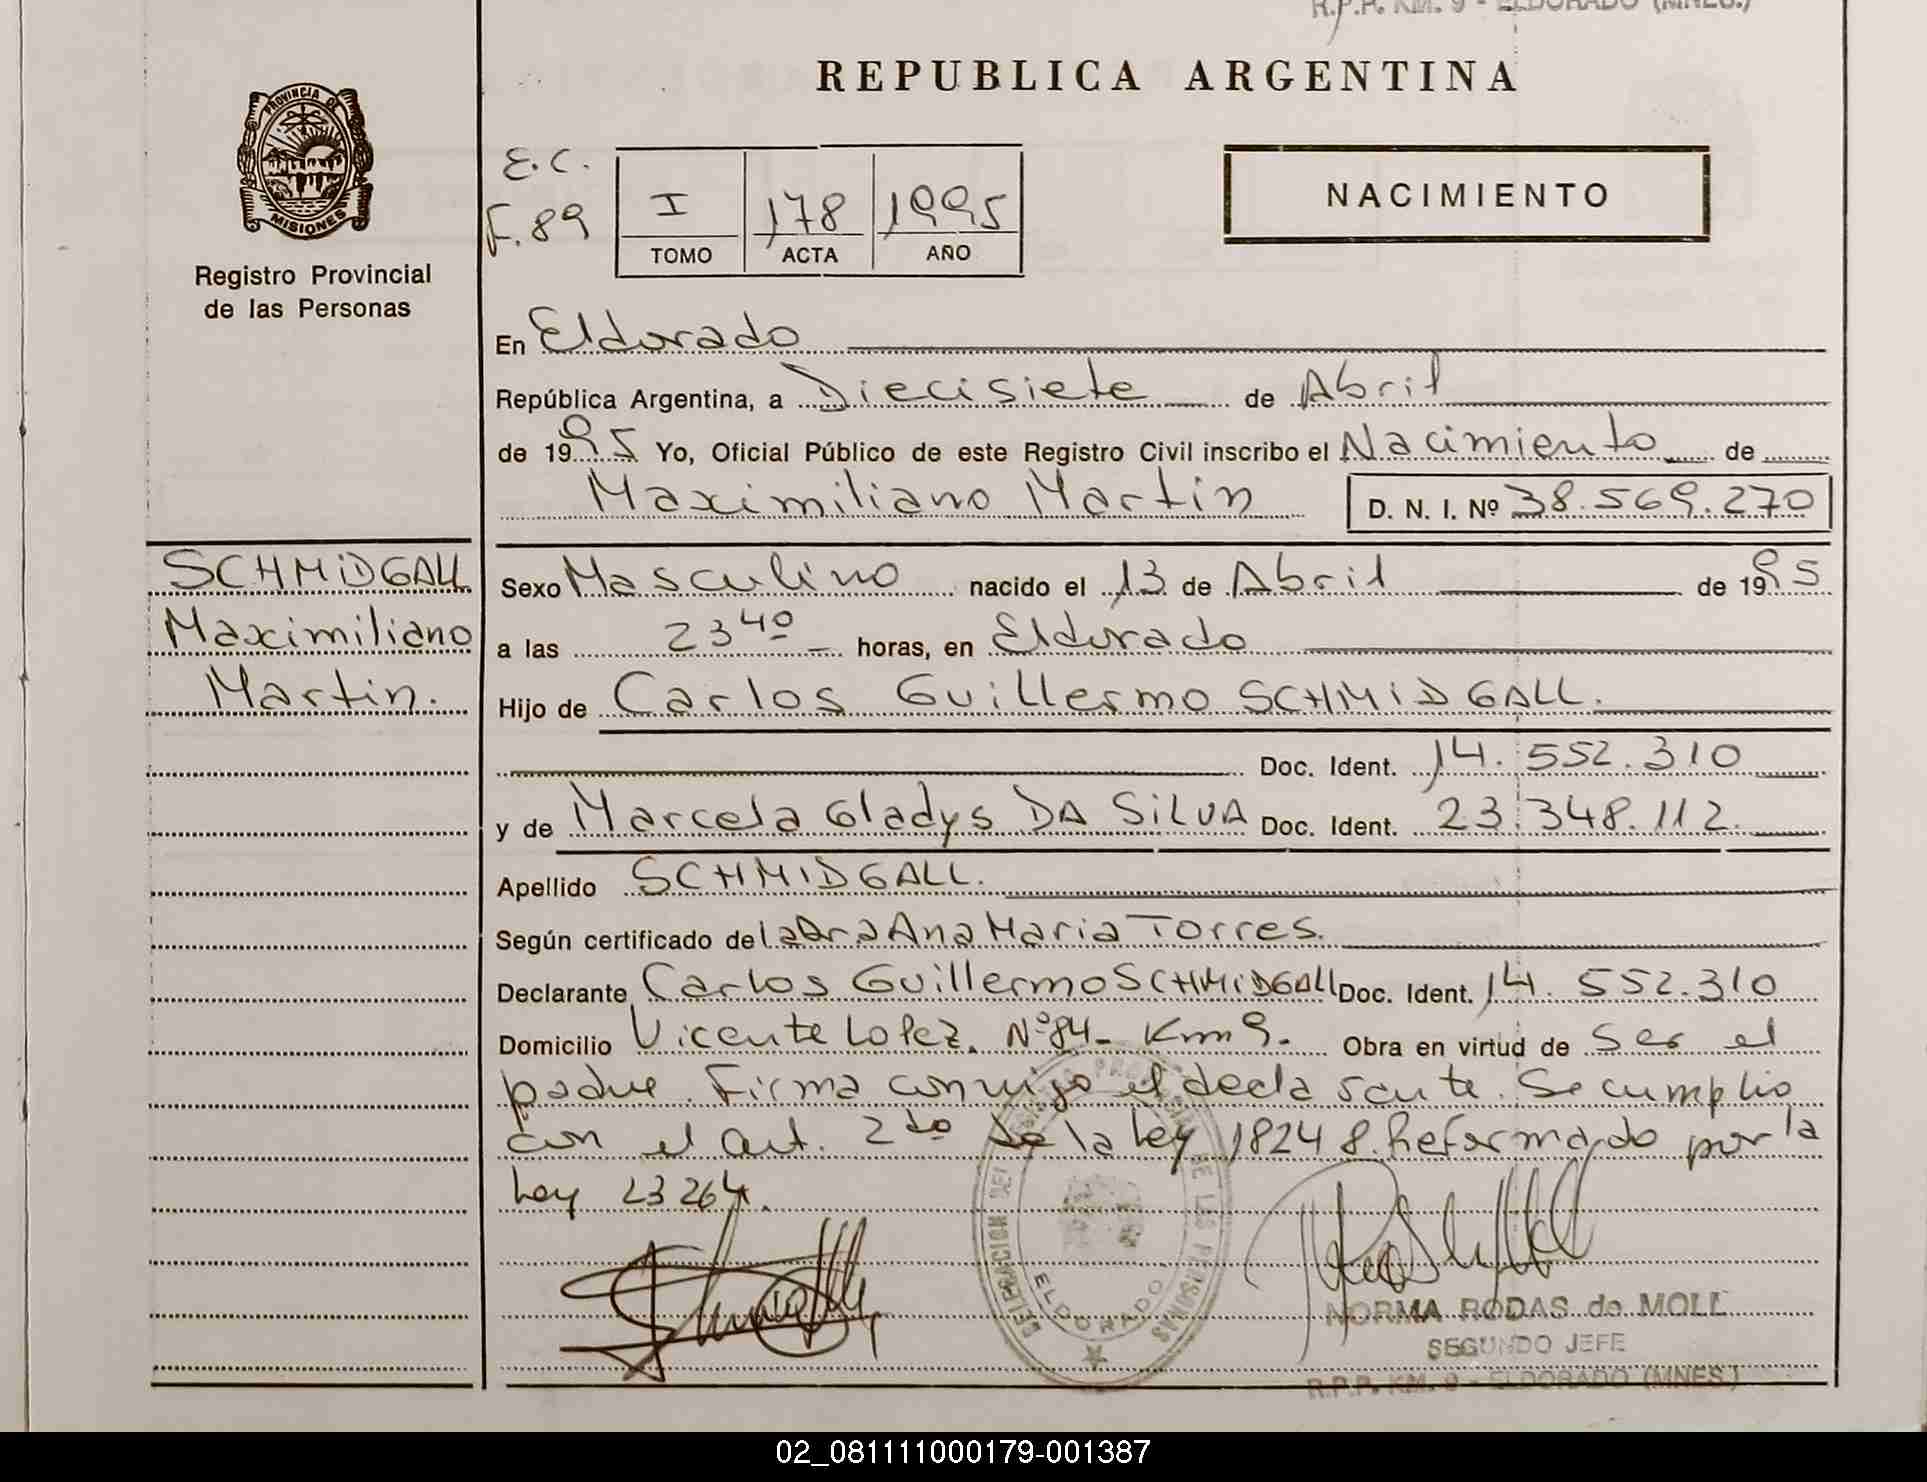 R.P.P. KM. 9 - ELDORADO (MNES.)
REPUBLICA ARGENTINA
PROVINCIA DE
MISIONES
Registro Provincial
de las Personas
E.C.
F. 89
I 178 1995
TOMO ACTA AÑO
NACIMIENTO
En Eldorado
República Argentina, a Diecisiete de Abril
de 1995 Yo, Oficial Público de este Registro Civil inscribo el Nacimiento de
Maximiliano Martin D. N. I. Nº 38.569.270
SCHMiDGALL
Maximiliano
Martin.
Sexo Masculino nacido el 13 de Abril de 1995
a las 23 40 horas, en Eldorado
Hijo de Carlos Guillermo SCHMiDGALL.
Doc. Ident. 14.552.310
y de Marcela Gladys DA SiLVA Doc. Ident. 23.348.112.
Apellido SCHMIDGALL.
Según certificado de la Dra Ana Maria Torres.
Declarante Carlos Guillermo SCHMiDGAll Doc. Ident. 14.552.310
Domicilio Vicente Lopez. Nº 84- Km 9. Obra en virtud de ser el
padre. Firma conmigo el declarante. Se cumplio
con el art. 2do de la Ley 18248. Reformado por la
Ley 23264.
DELEGACION DEL REGISTRO PROVINCIAL DE LAS PERSONAS
ELDORADO
NORMA RODAS de MOLL
SEGUNDO JEFE
R.P.P. KM. 9 - ELDORADO (MNES.)
02_081111000179-001387